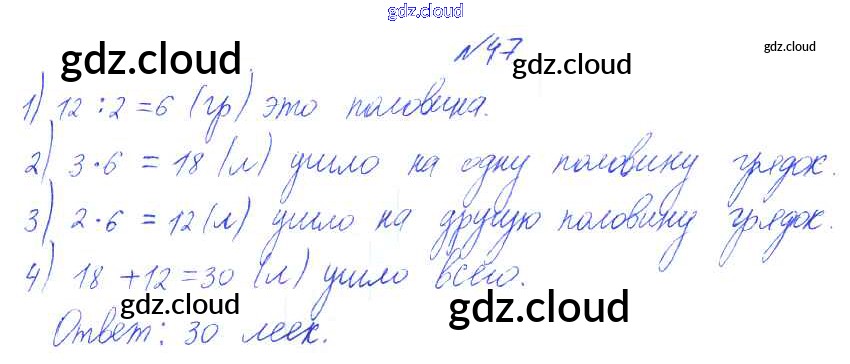 gdz.cloud
№47
gdz.cloud gdz.cloud gdz.cloud
1) 12 : 2 = 6 (гр) это половина.
2) 3 · 6 = 18 (л) ушло на одну половину грядок.
3) 2 · 6 = 12 (л) ушло на другую половину грядок.
4) 18 + 12 = 30 (л) ушло всего.
gdz.cloud gdz.cloud
Ответ: 30 леек.